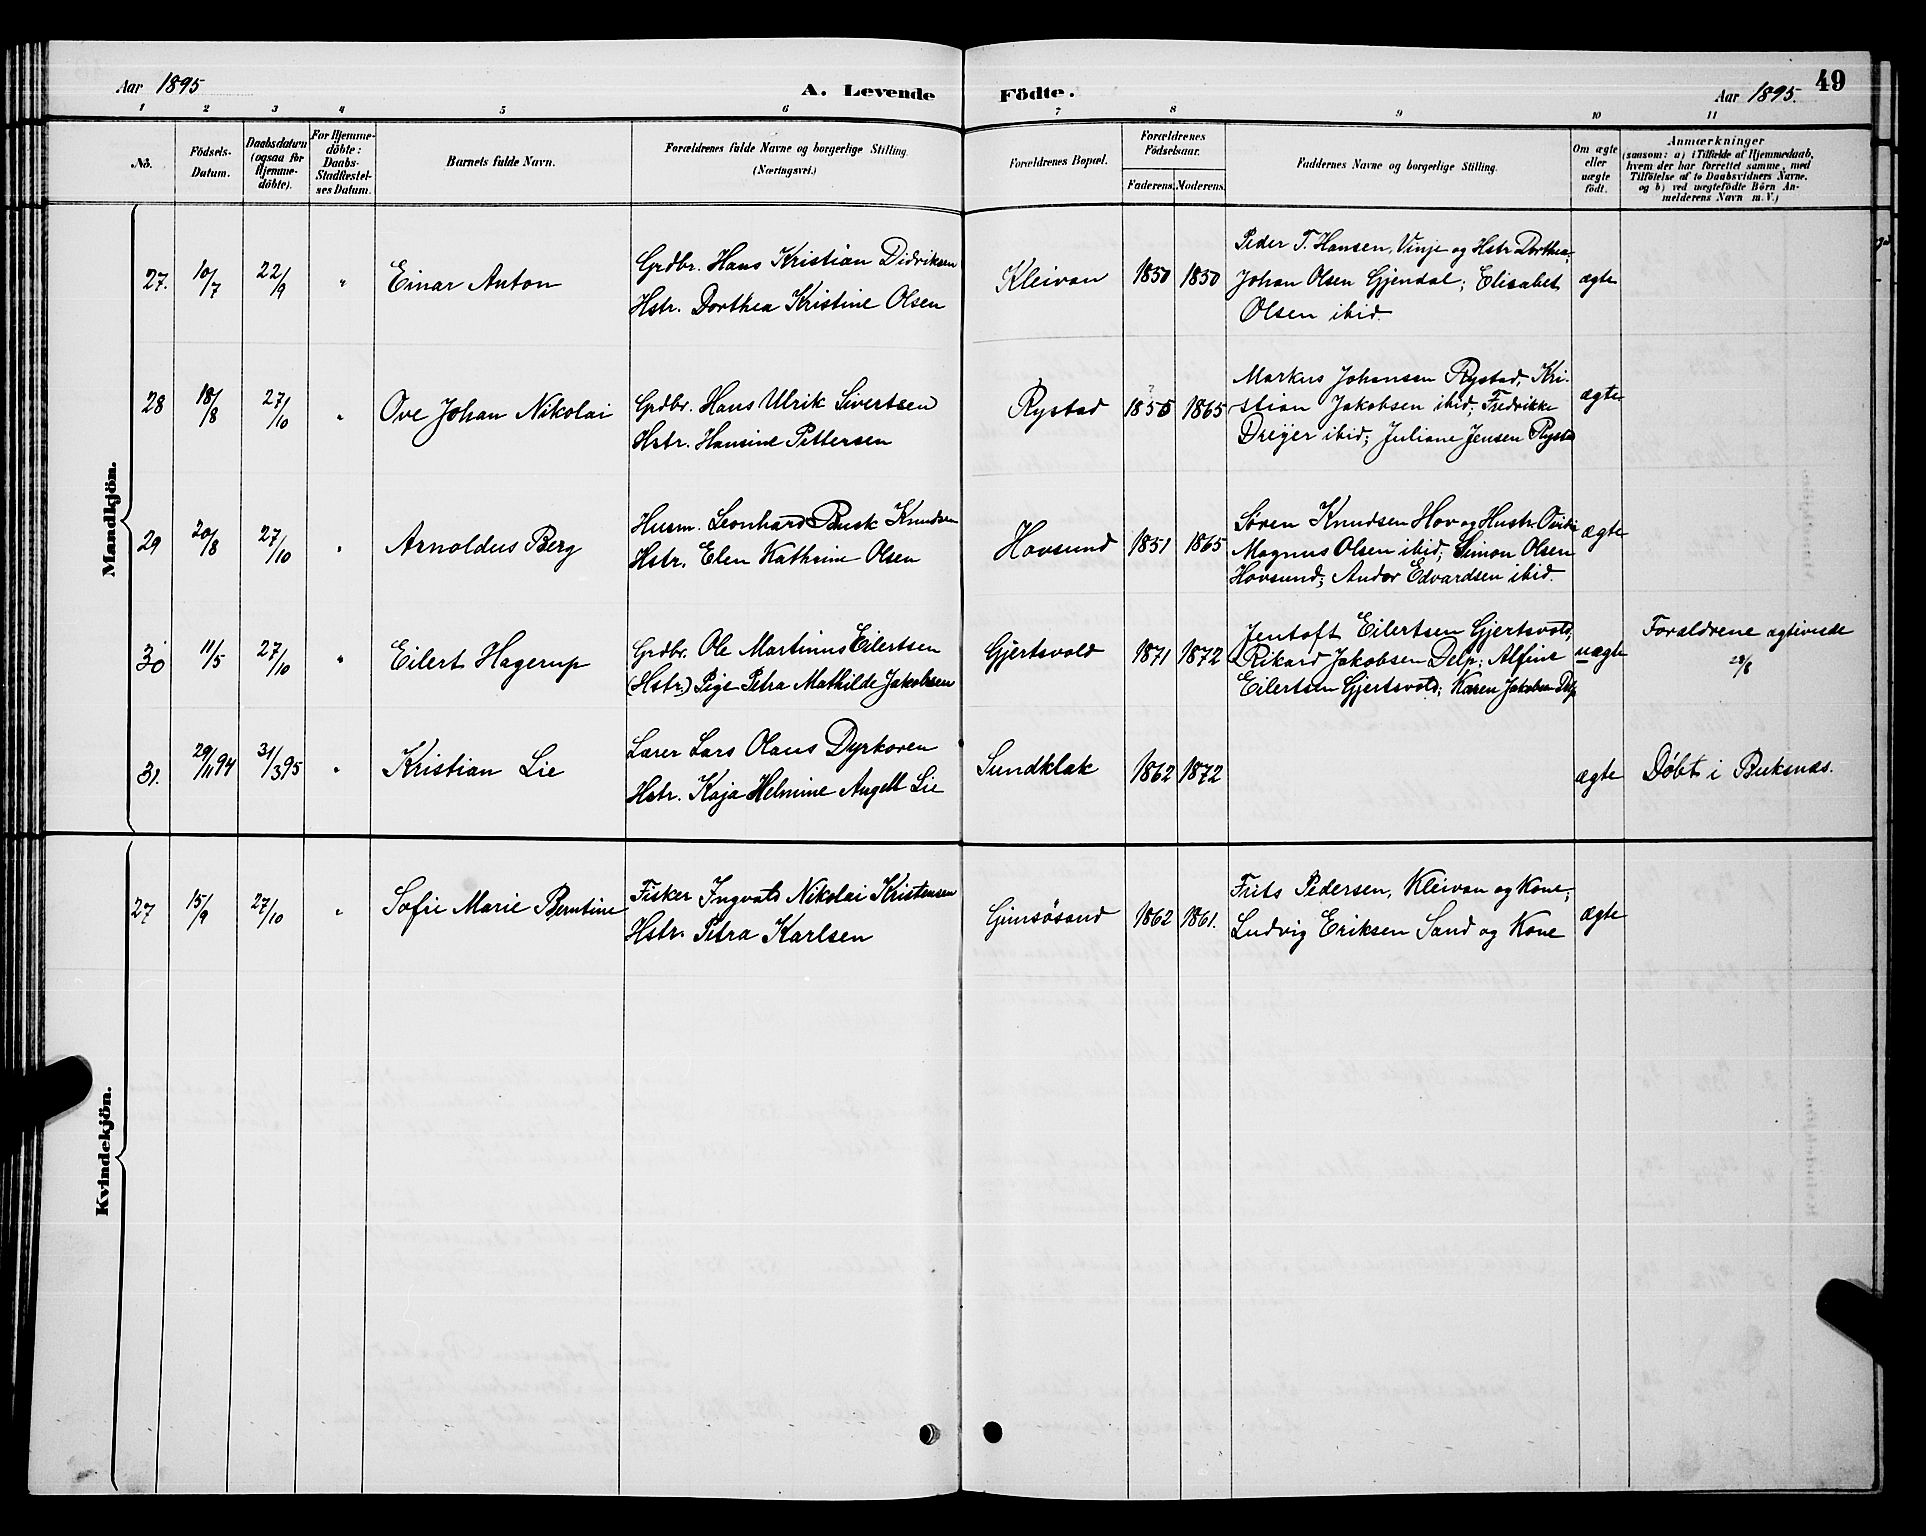 Aar 1895
A. Levende
Födte.
Aar 1895.
49
1 2 3 4 5 6 7 8 9 10 11
No.
Födsels-
Datum.
Daabsdatum
(ogsaa for
Hjemme-
döbte).
For Hjemme-
döbte:
Daabs-
Stadfæstel-
ses Datum.
Barnets fulde Navn.
Forældrenes fulde Navne og borgerlige Stilling.
(Næringsvei.)
Forældrenes Bopæl.
Forældrenes
Födselsaar.
Faderens. Moderens.
Faddernes Navne og borgerlige Stilling.
Om ægte
eller
uægte
födt.
Anmærkninger
(saasom: a) i Tilfælde af Hjemmedaab,
hvem der har forrettet samme, med
Tilföielse af to Daabsvidners Navne.
og b) ved uægtefödte Börn An-
melderens Navn m.V.)
Mandkjön.
27. 10/7 22/9 " Einar Anton
Grdbr. Hans Kristian Didriksen
Hstr. Dorthea Kristine Olsen
Kleivan 1850 1850
Peder T. Hansen, Vinje og Hstr Dorthea.
Johan Olsen Gjendal; Elisabet
Olsen ibid.
ægte
28 18/8 27/10 " Ove Johan Nikolai
Grdbr. Hans Ulrik Sivertsen
Hstr. Hansine Pettersen
Rystad 1856 1865
Markus Johansen Rystad, Kri-
stian Jakobsen ibid; Fredrikke
Dreyer ibid; Juliane Jensen Rystad
ægte
29 20/8 27/10 " Arnoldus Berg
Husm. Leonhard Busk Knudsen
Hstr. Elen Kathrine Olsen
Hovsund 1851 1865
Søren Knudsen Hov og Hustr.
Magnus Olsen ibid; Simon Olsen
Hovsund; Andor Edvardsen ibid.
ægte
30 11/5 27/10 " Eilert Hagerup
Grdbr. Ole Martinus Eilertsen
(Hstr.) Pige Petra Mathilde Jakobsen
Gjertsvold 1871 1872
Jentoft Eilertsen Gjertsvold,
Rikard Jakobsen Delp; Alfine
Eilertsen Gjertsvold; Karen Jakobsen Delp
uægte
Forældrene ægtviede
28/6
31. 29/11 94 31/3 95 " Kristian Lie
Lærer Lars Olaus Dyrkoren
Hstr. Kaja Helmine Angell Lie
Sundklak 1862 1872
ægte
Døbt i Buksnæs.
Kvindekjön.
27 15/9 27/10 " Sofie Marie Berntine
Fisker Ingvald Nikolai Kristensen
Hstr. Petra Karlsen
Gimsøsand 1862 1861.
Frits Pedersen, Kleivan og Kone;
Ludvig Eriksen Sand og Kone
ægte